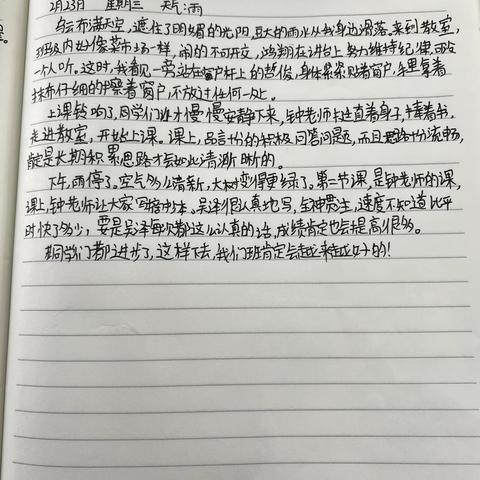 2月23日 星期三 天气:雨
乌云布满天空,遮住了明媚的光阴,豆大的雨水从我身边滑落。来到教室,
班级内如像菜市场一样,闹的不可开交,鸿翔在讲台上努力维持纪律,可没
一个人听。这时,我看见一旁站在窗户杆上的哲俊,身体紧紧贴着窗户,手里拿着
抹布仔细的擦着窗户,不放过任何一处。
上课铃响了,同学们才慢慢安静下来,钟老师挺直着身子,捧着书,
走进教室,开始上课。课上,品言十份的积极回答问题,而且思路十份流畅,
肯定是长期积累思路才会如此清淅晰的。
下午,雨停了。空气多么清新,大树变得更绿了。第二节课,是钟老师的课,
课上,钟老师让大家写抄本。吴泽很认真地写,全神贯主,速度不知道比平
时快了多少,要是吴泽每次都这么认真的话,成绩肯定也会提高很多。
同学们都进步了,这样下去,我们班肯定会越来越好的!